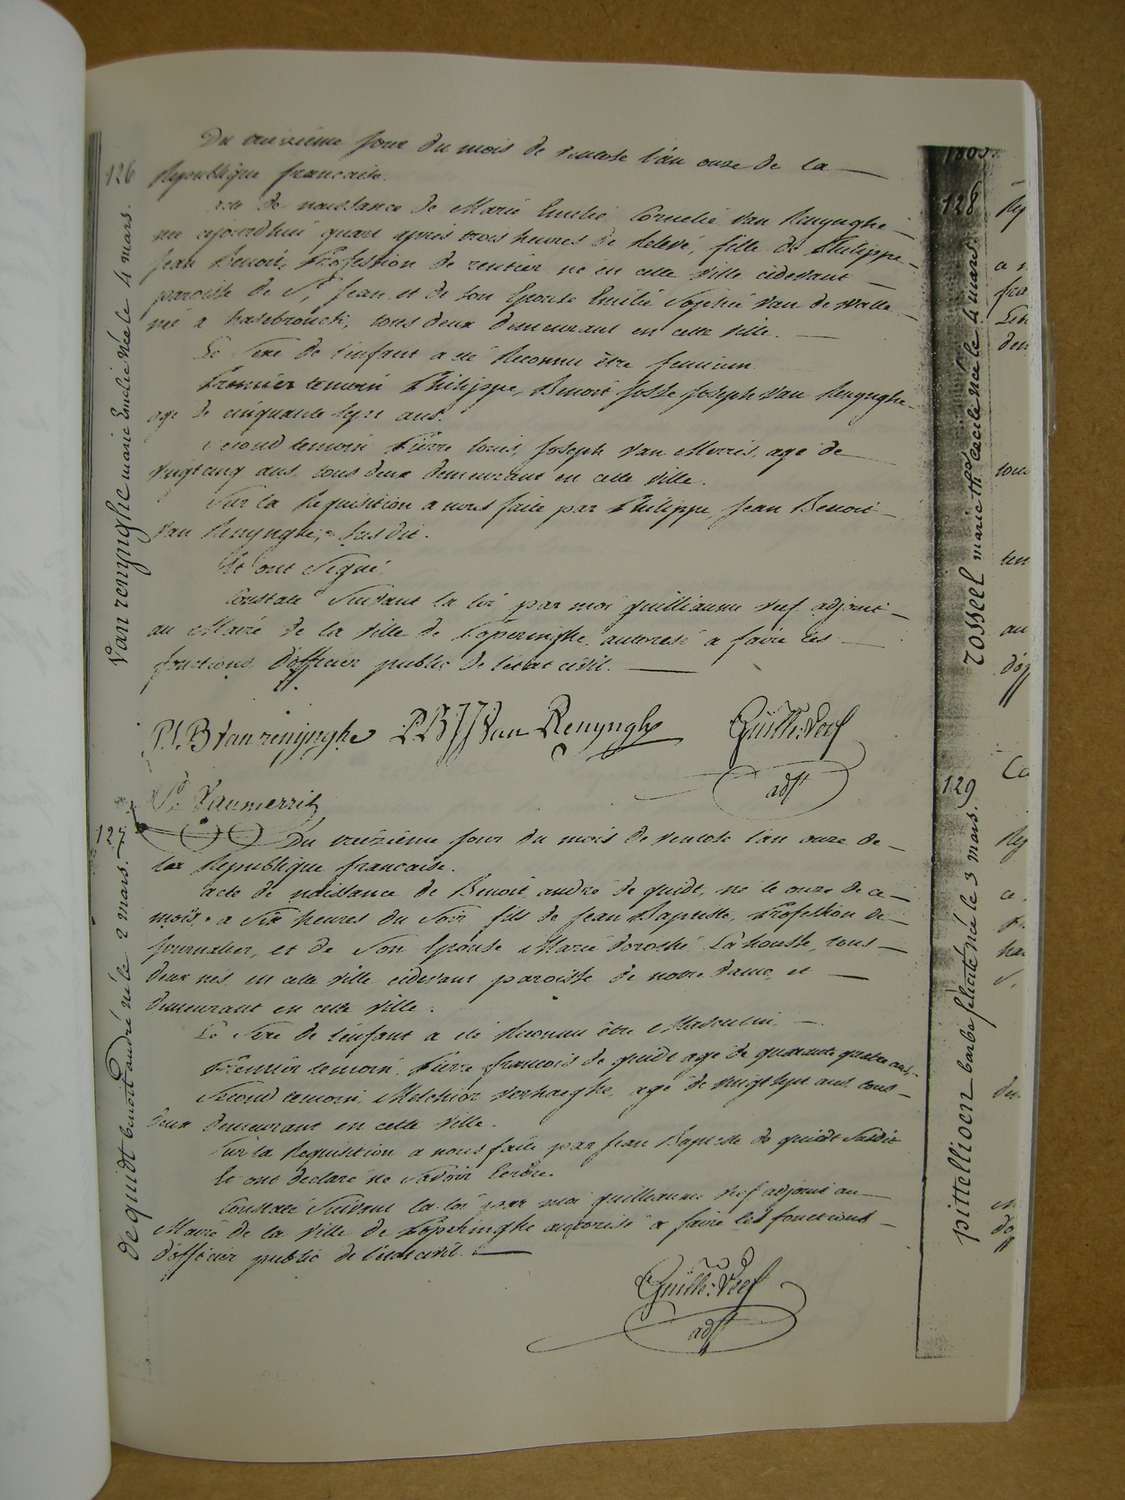 126
Van renynghe marie Emelie née le 4 mars.
Du treizieme jour du mois de ventose l'an onze de la
Republique francaise.
acte de naissance de Marie Emelie Cornelie Van Renynghe
née aujourdhui quart apres trois heures de Relevé, fille de Philippe
Jean Benoit, Profession de rentier né en cette ville cidevant
paroisse de St Jean et de son Epouse Emilie Sophie Van de Walle
née a hasebrouck, tous deux demeurant en cette ville.
Le Sexe de l'enfant a été Reconnu être feminin
Premier temoin Philippe Benoit Josse Joseph Van Renynghe
age de cinquante sept ans.
Second temoin Pierre louis Joseph Van Merris age de
vingt cinq ans tous deux demeurant en cette ville.
Sur la Requisition a nous faite par Philippe Jean Benoit
Van Renynghe, Susdit.
Et ont Signé
Constaté Suivant la loi par moi guilliaume veef adjoint
au Maire de la ville de Poperinghe autorisé a faire les
fonctions d'officier public de l'etat civil.
P. J. B Van renijnghe P B J J Van Renynghe Guilli: Veef
adjt
P. L. Vanmerris
127
de quidt benoit andré né le 2 mars.
Du treizieme jour du mois de ventose l'an onze de
la Republique francaise.
acte de naissance de Benoit andré de quidt, né le onze de ce
mois a Six heures du Soir fils de Jean Baptiste, Profession de
journalier, et de Son Epouse Marie dorothé Lahousse, tous
deux nés en cette ville cidevant paroisse de notre dame et
demeurant en cette ville.
Le Sexe de l'enfant a été Reconnu être Masculin
Premier temoin Pierre francois de quidt age de quarante quatre ans
Second temoin Melchior Verhaeghe, age de vingt sept ans tous
deux demeurant en cette ville.
Sur la Requisition a nous faite par Jean Baptiste de quidt Susdit
Et ont declaré ne Savoir Ecrire.
Constaté Suivant la loi par moi guilliaume veef adjoint au
Maire de la ville de Poperinghe autorisé a faire les fonctions
d'officier public de l'etat civil.
Guilli: Veef
adjt
128
rosseel marie thse cecile née le 4 mars.
129
pittellioen barbe félicité née le 3 mars.